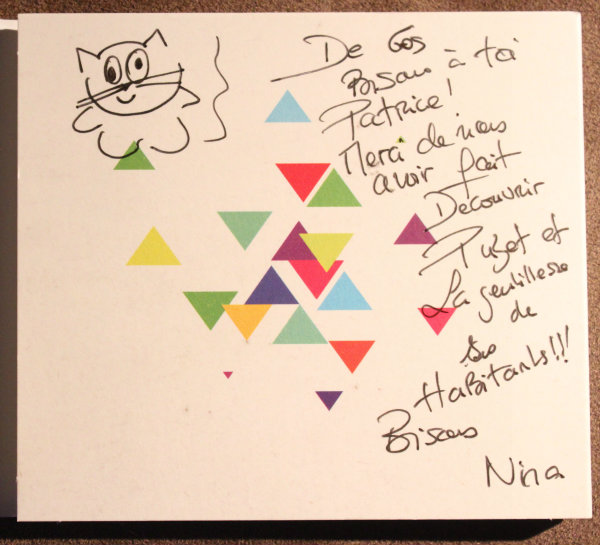 De Gos
Bisous à toi
Patrice!
Merci de nous
avoir fait
Découvrir
Puget et
La gentillesse
de
ses
Habitants!!!
Bisous
Nina